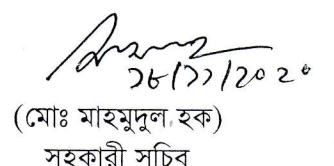 ১৮/১১/২০২০
(মোঃ মাহমুদুল হক)
সহকারী সচিব